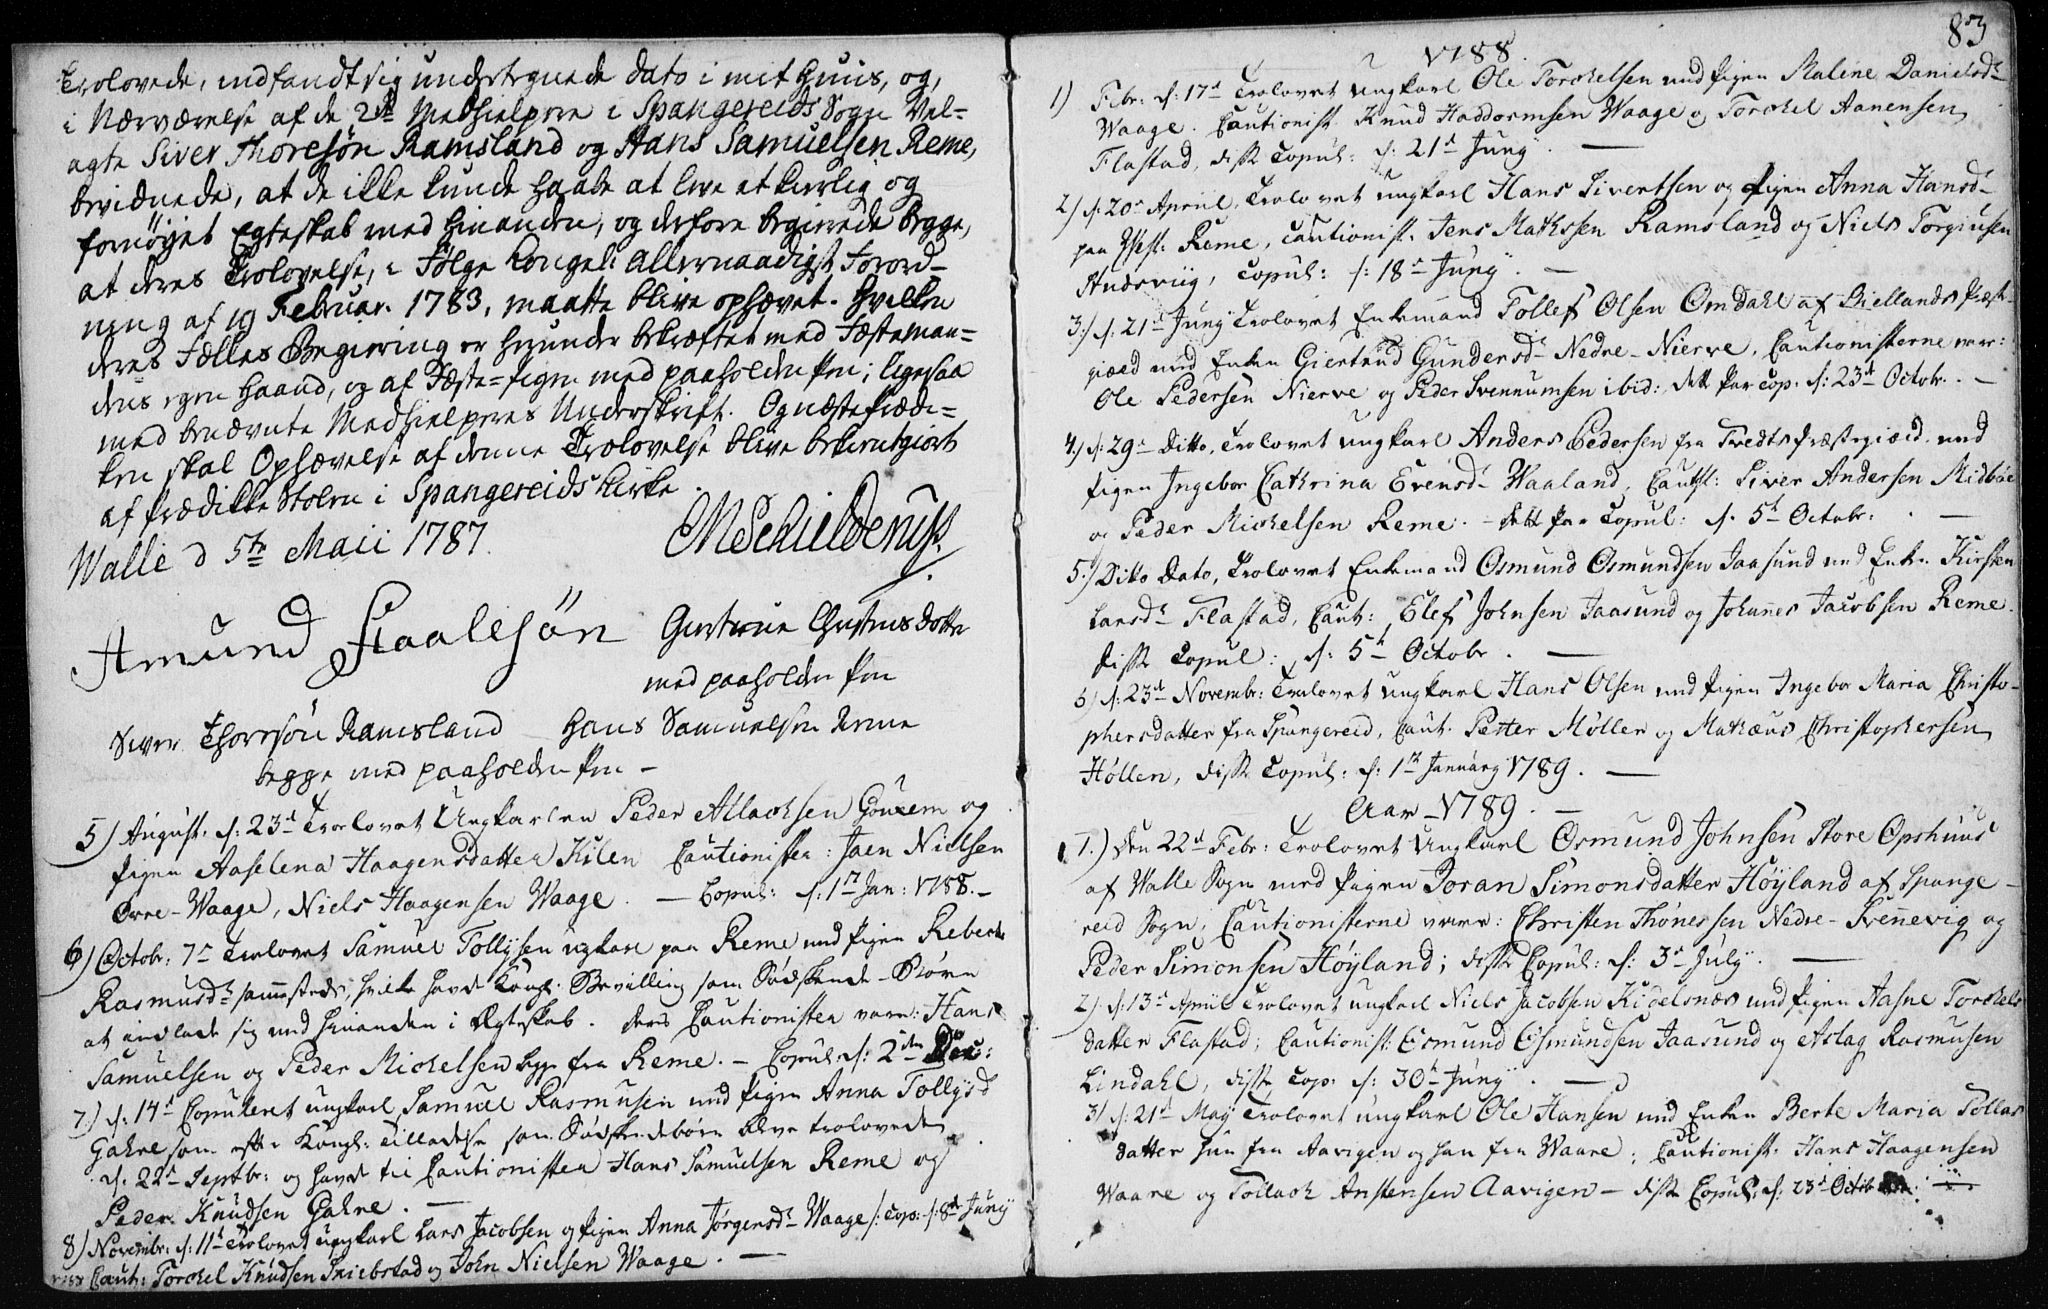 Trolovede, indfandt sig undertegnede dato i mit Huus, og,
i Nærværelse af de 2de Medhielpere i Spangereids Sogn Vel-
agte Siver Thoresøn Ramsland og Hans Samuelsen Reme,
bevidnede, at de ikke kunde haabe at leve et kierlig og
fornøyet Egteskab med hinanden, og derfore begierede begge,
at deres Trolovelse, i Følge Kongel: allernaadigst Forord-
ning af 19 Februar. 1783, maatte blive ophævet. Hvilken
deres Fælles Begiering er herunder bekræftet med Fæsteman-
dens egen Haand, og af Fæste-Pigen med paaholden Pen; ligesaa
med benævnte Medhielperes Underskrift. Og næste Prædi-
ken skal Ophævelse af denne Trolovelse blive bekientgiort
af Prædikke Stolen i Spangereids Kirke.
Walle d 5te Maii 1787.
CMSchilderup.
Amund Staalesøn
Giertrue Christensdotter
med paaholden Pen
Siver Thoresøn Ramsland Hans Samuelsen Reme
begge med paaholden Pen -
5) August. d: 23d Trolovet Ungkarlen Peder Atlacksen Gouxem og
Pigen Aaselena Haagensdatter Kilen Cautionister: Jaen Nielsen
Øvre-Waage, Niels Haagensen Waage. - Copul: d: 1te Jan: 1788. -
6) Octobr: 7d Trolovet Samuel Tollysen ugkarl paa Reme med Pigen Rebecka
Rasmusdr sammesteds, hvilke havde Kongl. Bevilling som Sødskende-Børn
at indlade sig med hinanden i Ægteskab. Deres Cautionister vare: Hans
Samuelsen og Peder Mickelsen begge fra Reme. - Copul: d: 2den Dec:
7) d: 14d Copuleret ungkarl Samuel Rasmusen med Pigen Anna Tollysd
Gahre som efter Kongl: Tilladelse som Sødskendebørn bleve trolovede
d: 22d Septbr: og havde til Cautionister Hans Samuelsen Reme og
Peder Knudsen Gahre. -
8) Novembr: d: 11d Trolovet ungkarl Lars Jacobsen og Pigen Anna Jørgensdr Waage /: cop: d: 8d Juny
1788 Caut: Torckel Knudsen Skiebstad og John Nielsen Waage. -
83
1788.
1) Febr: d: 17d Trolovet Ungkarl Ole Torckelsen med Pigen Malene Danielsdr
Waage. Cautionist. Knud Haddormsen Waage og Torckel Aanensen
Flastad, disse Copul: d: 21d Juny. -
2) d: 20d April, Trolovet ungkarl Hans Sivertsen og Pigen Anna Hansdr
paa Reme, Cautionist. Jens Mathssen Ramsland og Niels Torgiusen
Andorviig, Copul: d: 18d Juny. -
3.) d. 21d Juny Trolovet Enkemand Tollef Olsen Omdahl af Biellands Præste-
giæld med Enken Giertrud Gundersdr Nedre-Nierve, Cautionisterne vare:
Ole Pedersen Nierve og Peder Svennumsen ibid: dette Par cop: d: 23d Octobr. -
4.) d: 29d Ditto, Trolovet ungkarl Anders Pedersen fra Tvedts Præstegiæld med
Pigen Ingebor Cathrina Evensdr Haaland, Cautist: Siver Andersen Midbøe
og Peder Mickelsen Reme. - Dette Par Copul: d. 5d Octobr: -
5.) Ditto Dato, Trolovet Enkemand Osmund Osmundsen Jaasund med Enken Kirsten
Larsdr Flastad, Caut: Elef Johnsen Jaasund og Johannes Jacobsen Reme.
disse Copul: d: 5d Octobr. -
6) d: 23d Novembr: Trolovet ungkarl Hans Olsen med Pigen Ingebor Maria Christo-
phersdatter fra Spangereid, Caut. Petter Møller og Mathæus Christophersen
Høllen, disse Copul: d: 1te January 1789. -
Aar 1789. -
1.) Den 22d Febr: Trolovet Ungkarl Osmund Johnsen Store Opshuus
af Walle Sogn med Pigen Joran Simonsdatter Høyland af Spange-
reid Sogn, Cautionisterne vare: Christen Thønessen Nedre-Svenevig og
Peder Simonsen Høyland; disse Copul: d: 3d July. -
2) d: 13d April Trolovet ungkarl Niels Jacobsen Kigelsnæs med Pigen Aasne Torckels
datter Flastad; Cautionist: Osmund Osmundsen Jaasund og Aslag Rasmusen
Lindahl, disse Cop: d: 30d Juny. -
3) d: 21d May Trolovet ungkarl Ole Hansen med Enken Berte Maria Tollas
datter hun fra Aavigen og han fra Waare; Cautionist. Hans Haagensen
Waare og Tollack Anstensen Aavigen - disse Copul: d: 23d Octob